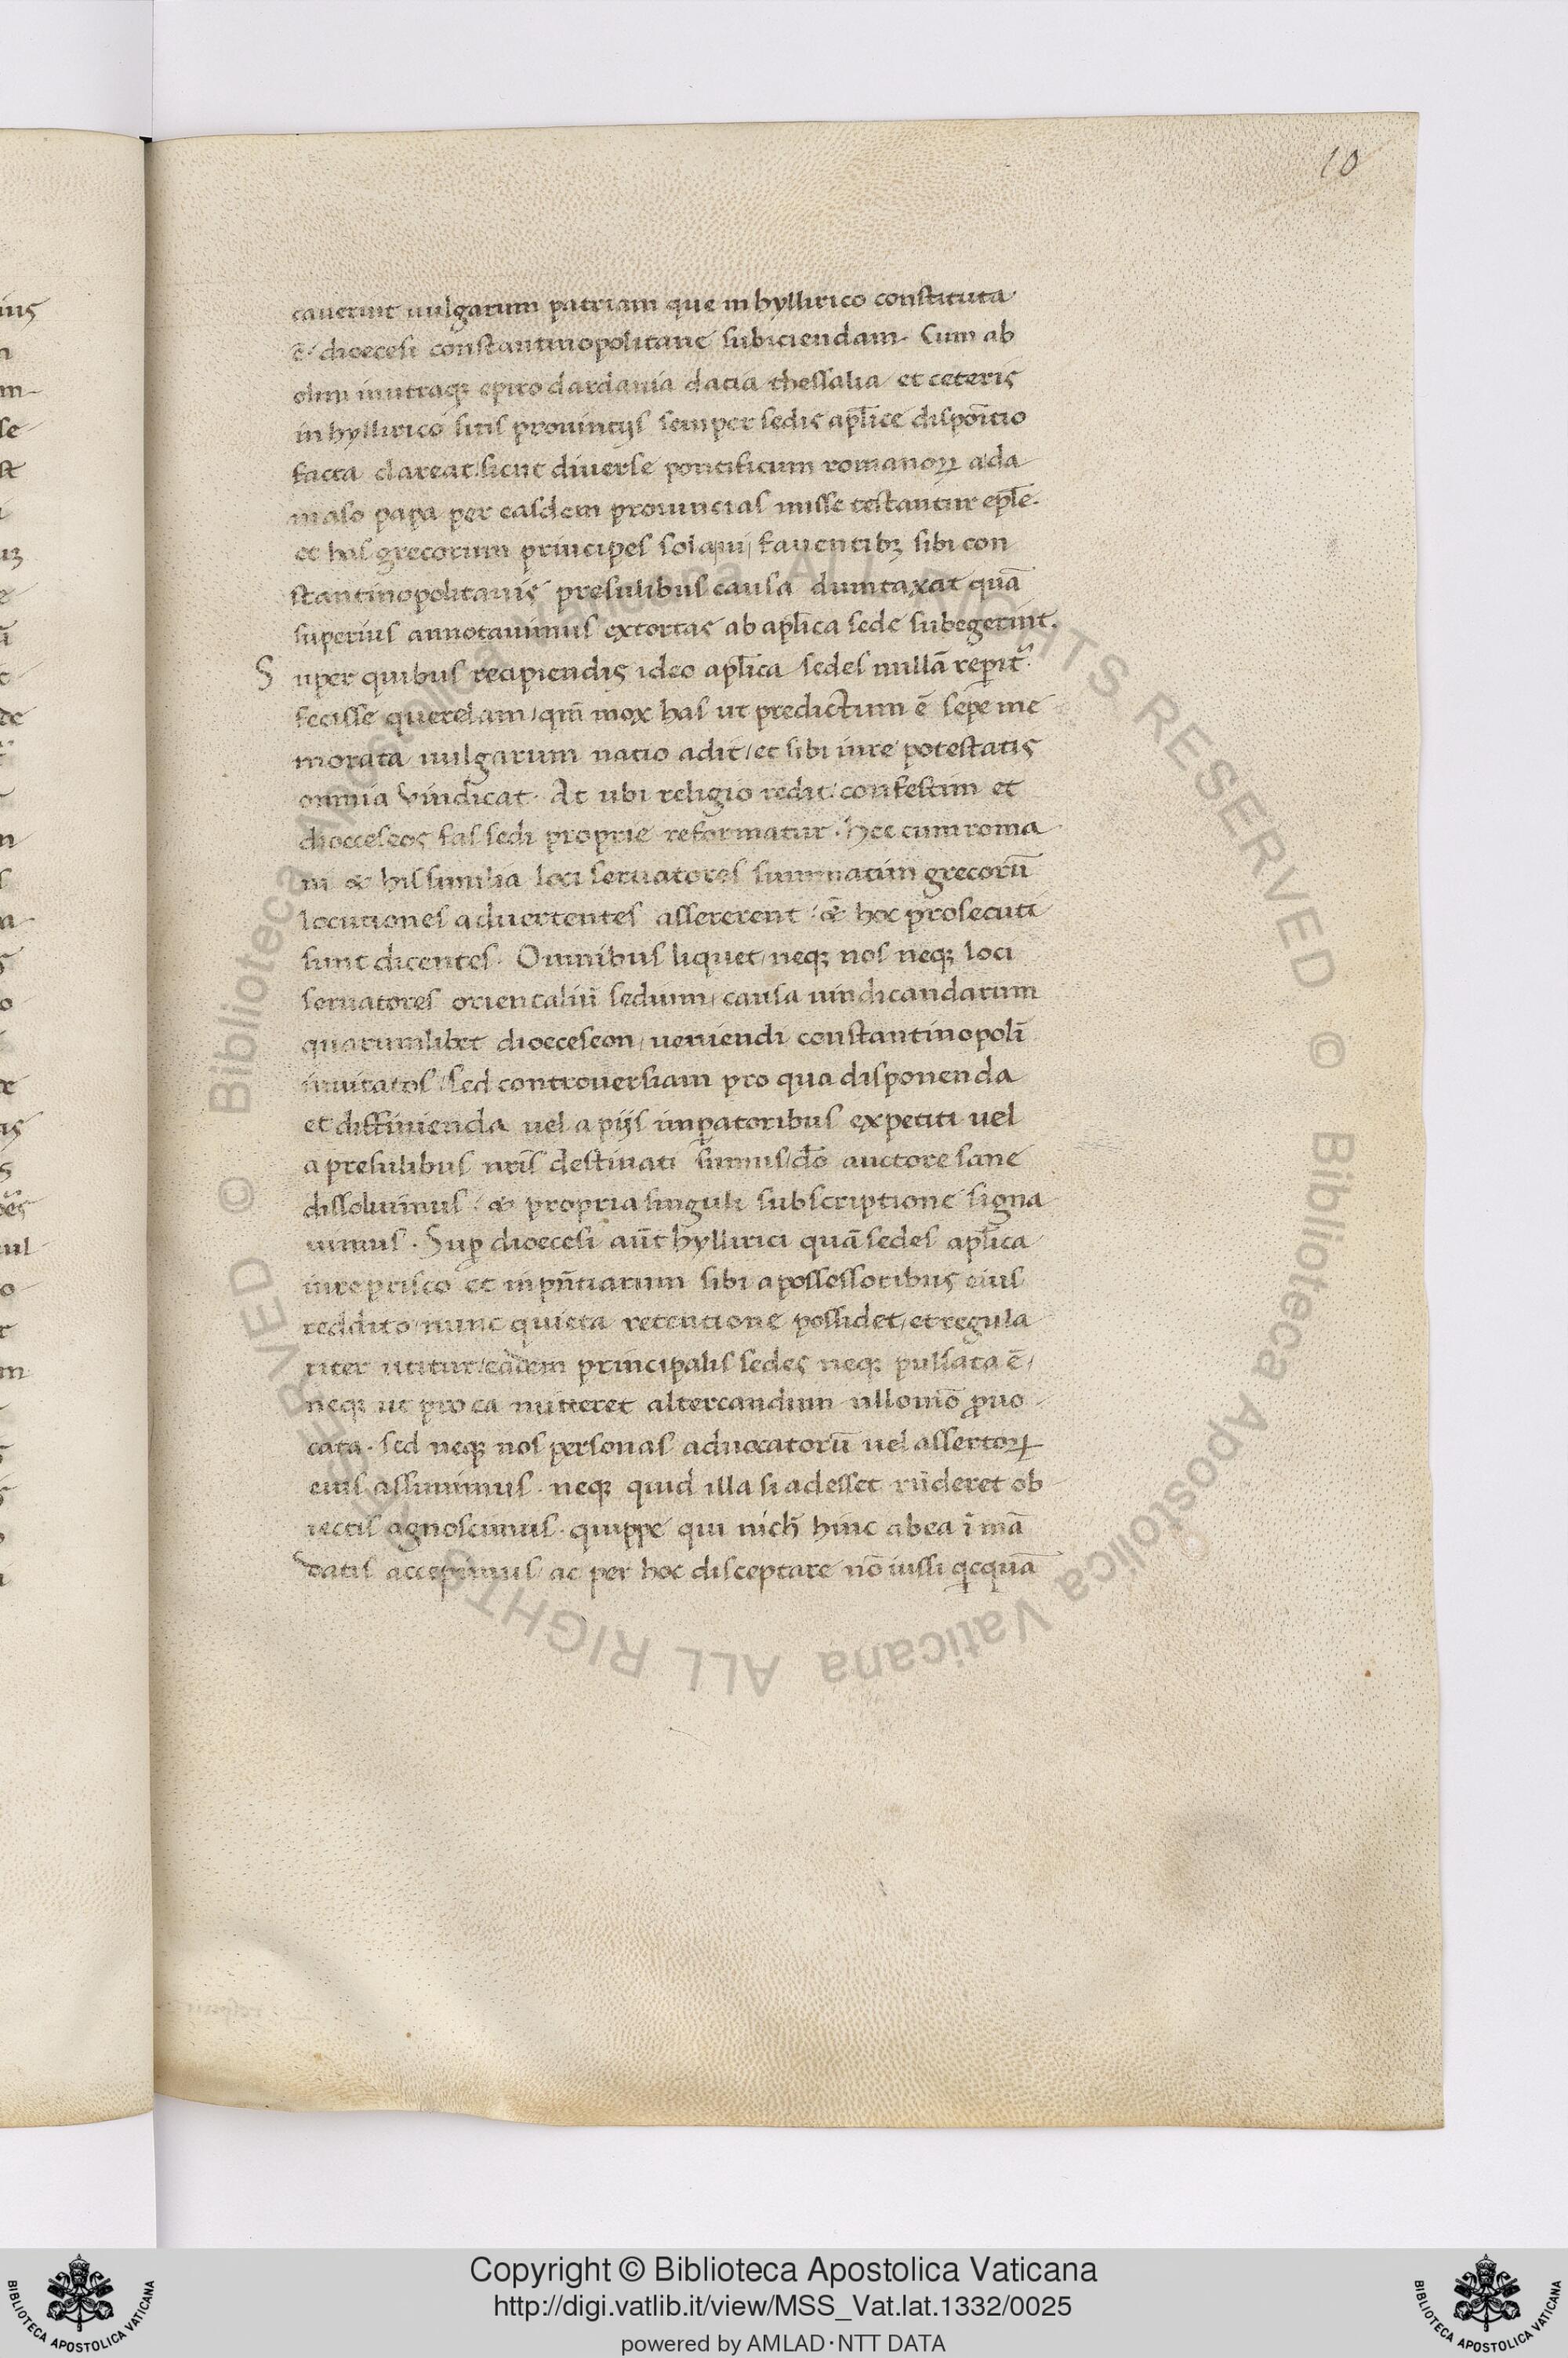 10
cauerint uulgarum patriam que in hyllirico constituta
ē / dioecesi constantinopolitane subiciendam. Cum ab
olim in utraqꝫ epiro dardania dacia thessalia et ceteris
in hyllirico sitis prouintijs semper sedis apl̄ice dispoītio
facta clareat / sicut diuerse pontificum romanoꝝ a da
maso papa per easdem prouincias misse testantur epl̄e.
et has grecorum principes sola ui / fauentibꝫ sibi con
stantinopolitanis presulibus causa dumtaxat quā
superius annotauimus extortas ab apl̄ica sede subegerint.
Super quibus recipiendis ideo apl̄ica sedes nullā reperit᷑
fecisse querelam / qm̄ mox has ut predictum ē sepe me
morata uulgarum natio adit / et sibi iure potestatis
omnia vindicat. At ubi religio redit / confestim et
dioeceseos fas sedi proprie reformatur. hec cum roma
ni & his similia loci seruatores summatim grecorū
locutiones aduertentes assererent / & hoc prosecuti
sunt dicentes. Omnibus liquet / neqꝫ nos neqꝫ loci
seruatores orientaliū sedium / causa uindicandarum
quarumlibet dioeceseon / ueniendi constantinopolī
inuitatos / sed controuersiam pro qua disponenda
et diffinienda uel a pijs imꝑatoribus expetiti uel
a presulibus nr̄is destinati sumus / dō auctore sane
dissoluimus / & propria singuli subscriptione signa
uimus. Suꝑ dioecesi aūt hyllirici quā sedes apl̄ica
iure prisco et in pn̄tiarum sibi a possessoribus eius
reddito / nunc quieta retentione possidet / et regula
riter utitur / eadem principalis sedes neqꝫ pulsata ē /
neqꝫ ut pro ea mitteret altercandum ullo mō ꝓuo
cata. sed neqꝫ nos personas aduocatorū uel assertoꝝ
eius assumimus. neqꝫ quid illa si adesset rn̄deret ob
iectis agnoscimus. quippe qui nich̄ hinc ab ea ī mā
datis accepimus / ac per hoc disceptare nō iussi qͥcquā
© Biblioteca Apostolica Vaticana ALL RIGHTS RESERVED
© Biblioteca Apostolica Vaticana ALL RIGHTS RESERVED
Copyright © Biblioteca Apostolica Vaticana
http://digi.vatlib.it/view/MSS_Vat.lat.1332/0025
powered by AMLAD·NTT DATA
BIBLIOTECA APOSTOLICA VATICANA
BIBLIOTECA APOSTOLICA VATICANA